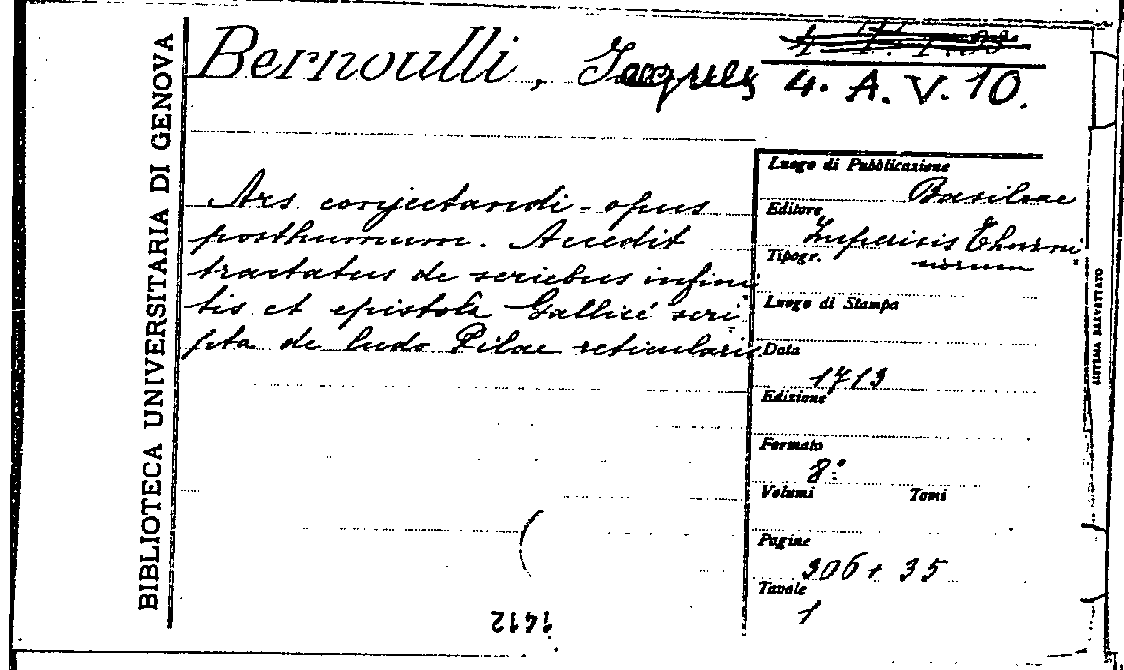 BIBLIOTECA UNIVERSITARIA DI GENOVA
Bernoulli, Jacques
4. A. V. 10.
Ars conjectandi - opus
posthumum. Accedit
tractatus de seriebus infini
tis et epistola Gallicé scri
pta de ludo Pilae reticularis.
Luogo di Pubblicazione
Basileae
Editore
Impensis Thurni
siorum
Tipogr.
Luogo di Stampa
Data
1713
Edizione
Formato
8°
Volumi Tomi
Pagine
306 + 35
Tavole
1
1412